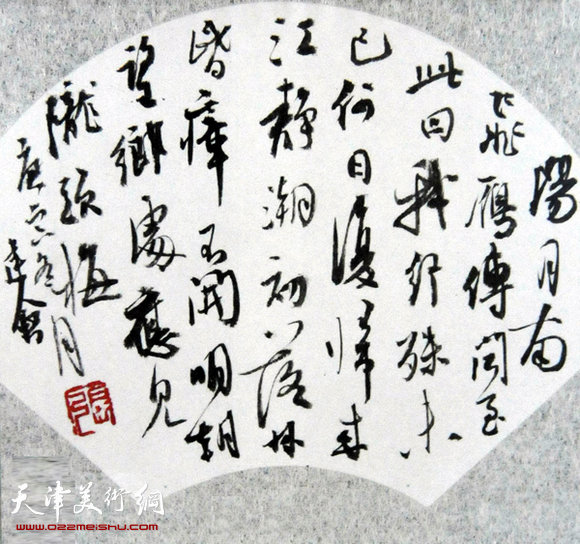 陽月南
飛鴈傳聞至
此回我行殊未
已何日復歸来
江静潮初落林
昏瘴不開明朝
望鄉處應見
隴頭梅
月
天津美術網
www.022meishu.com